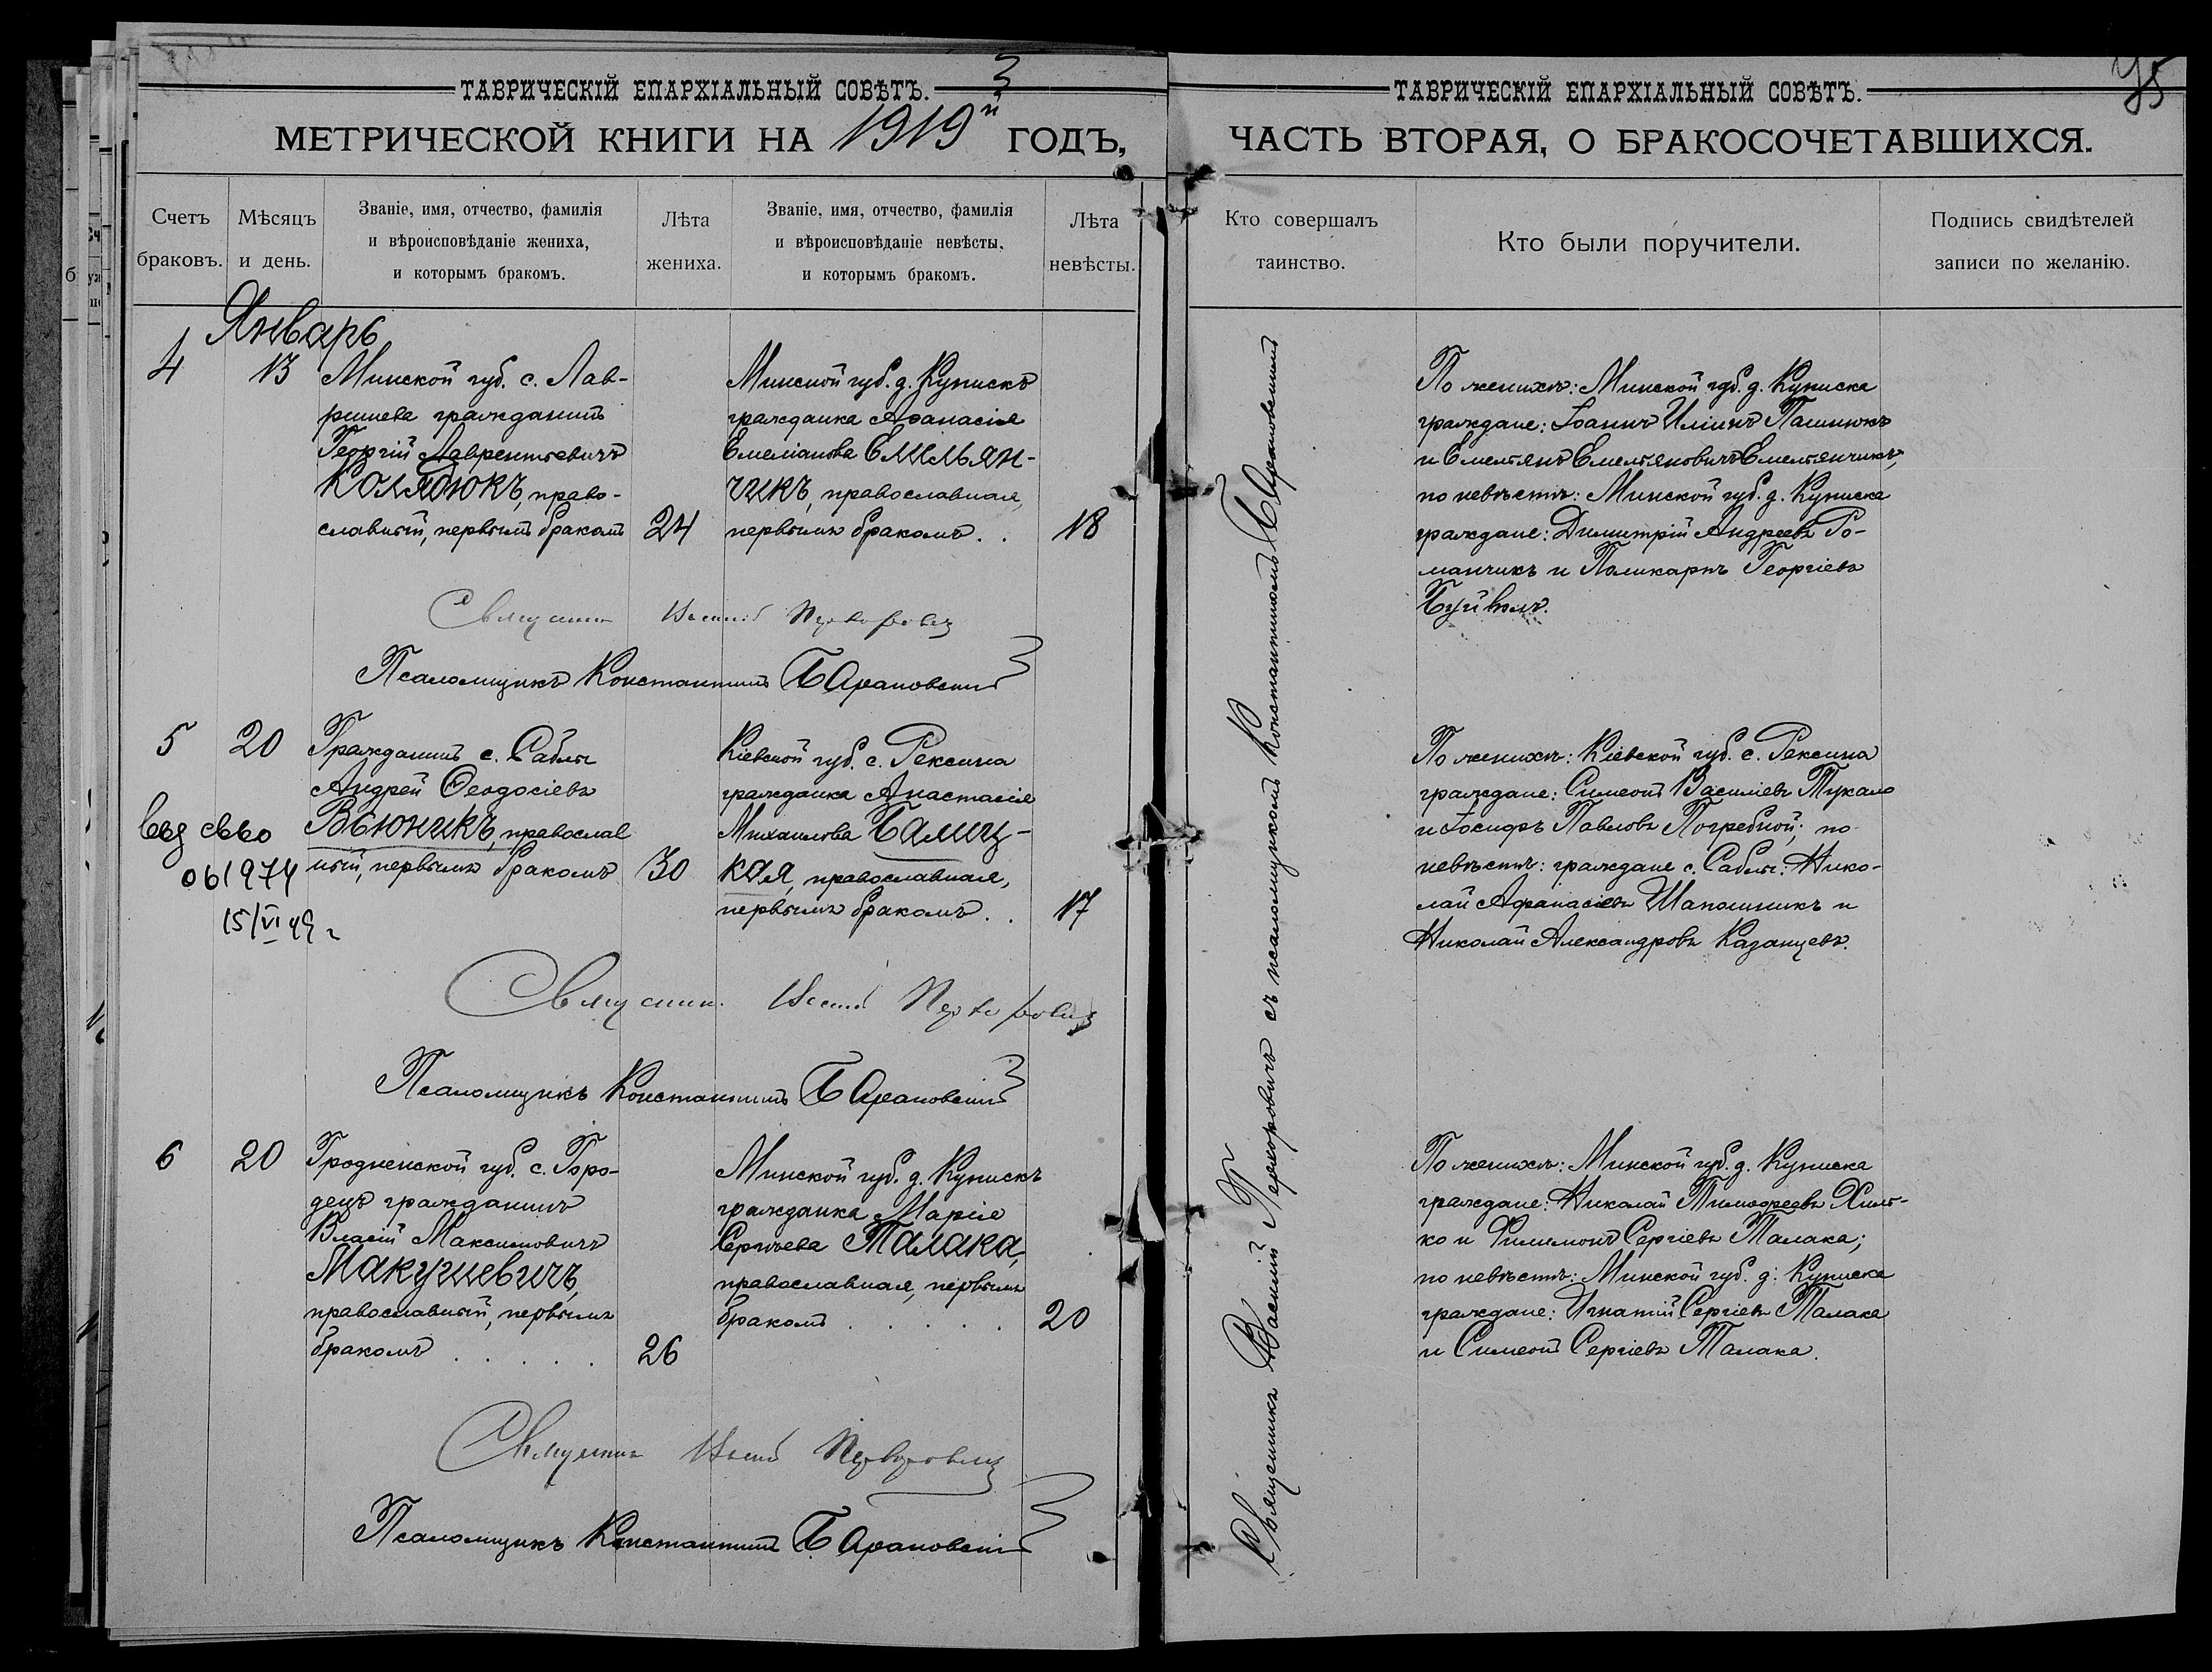 ТАВРИЧЕСКІЙ ЕПАРХІАЛЬНЫЙ СОВѢТЪ.
3
МЕТРИЧЕСКОЙ КНИГИ НА 1919й ГОДЪ,
Счетъ браковъ.
Мѣсяцъ и день.
Званіе, имя, отчество, фамилія
и вѣроисповѣданіе жениха,
и которымъ бракомъ.
Лѣта жениха.
Званіе, имя, отчество, фамилія
и вѣроисповѣданіе невѣсты,
и которымъ бракомъ.
Лѣта невѣсты.
Январь
4
13
Минской губ. с. Лав-
ришева гражданинъ
Георгій Лаврентьевичъ
Колядюкъ, право-
славный, первымъ бракомъ
24
Минской губ. д. Купискъ
гражданка Аѳанасія
Емеліанова Емильян-
чикъ, православная,
первымъ бракомъ..
18
Священникъ Василій Перхоровичъ
Псаломщикъ Константинъ Барановскій
5
20
Гражданинъ с. Саблы
Андрей Ѳеодосіевъ
Вьюникъ, православ
ный, первымъ бракомъ
30
Кіевской губ. с. Рексина
гражданка Анастасія
Михаилова Балиц-
кая, православная,
первымъ бракомъ..
17
выд св-во
061974
15/VI 49 г
Священник Василій Перхоровичъ
Псаломщикъ Константинъ Барановскій
6
20
Гродненской губ. с. Горо-
децъ гражданинъ
Власій Максимовичъ
Макушевичъ,
православный, первымъ
бракомъ.....
26
Минской губ. д. Купискъ
гражданка Марія
Сергѣева Талака,
православная, первымъ
бракомъ.....
20
Священник Василій Перхоровичъ
Псаломщикъ Константинъ Барановскій
ТАВРИЧЕСКІЙ ЕПАРХІАЛЬНЫЙ СОВѢТЪ.
45
ЧАСТЬ ВТОРАЯ, О БРАКОСОЧЕТАВШИХСЯ.
Кто совершалъ таинство.
Кто были поручители.
Подпись свидѣтелей
записи по желанію.
Священникъ Василій Перхоровичъ съ псаломщикомъ Константиномъ Барановскимъ
По женихѣ: Минской губ. д. Куписка
граждане: Іоаннъ Иліинъ Пашнюкъ
и Емельянъ Емельяновичъ Емельянчикъ,
по невѣстѣ: Минской губ. д. Куписка
граждане: Димитрій Андреевъ Ро-
манчикъ и Поликарпъ Георгіевъ
Буйволъ.
По женихѣ: Кіевской губ. с. Рексина
граждане: Симеонъ Василіевъ Тукало
и Іосифъ Павловъ Погребной; по
невѣстѣ: граждане с. Саблы: Нико-
лай Афанасіевъ Шапошникъ и
Николай Александровъ Казанцевъ.
По женихѣ: Минской губ. д. Куписка
граждане: Николай Тимоѳеевъ Хиль-
ко и Филимонъ Сергіевъ Талака;
по невѣстѣ: Минской губ. д. Куписка
граждане: Игнатій Сергіевъ Талака
и Симеонъ Сергіевъ Талака.